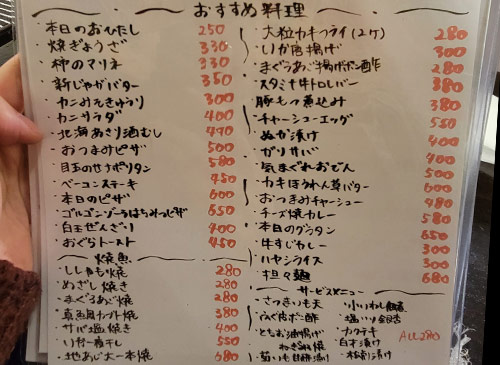 おすすめ料理
・本日のおひたし 250
・焼ぎょうざ 330
・柿のマリネ 330
・新じゃがバター 350
・カニみそきゅうり 300
・カニサラダ 400
・北海あさり酒むし 470
・おつまみピザ 500
・目玉のせナポリタン 580
・ベーコンステーキ 450
・本日のピザ 600
・ゴルゴンゾーラはちみつピザ 650
・白玉ぜんざい 400
・おぐらトースト 450
焼魚
・ししゃも焼 280
・めざし焼き 280
・まぐろあご焼 280
・真鳥賊トマト焼 400
・サバ塩焼き 400
・いか一夜干し 550
・地あじ大一本焼 680
・大粒カキフライ(2ヶ) 280
・いか唐揚げ 300
・まぐろあご揚げポン酢 280
・スタミナ牛トロレバー 380
・豚もつ煮込み 380
・チャーシューエッグ 550
・ぬか漬け 400
・ガリサバ 400
・気まぐれおでん 500
・カキほうれん草バター 600
・おつまみチャーシュー 480
・チーズ焼カレー 580
・本日のグラタン 650
・牛すじカレー 300
・ハヤシライス 300
・担々麺 680
サービスメニュー
・さつまいも天
・ふぐ皮ポン酢
・とちお油揚げ
ねぎみそ焼
・カクテキ
・白才漬け
ALL280